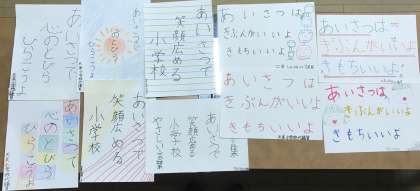 あいさつで
心のとびら
ひらこうよ
あいさつで
心のとびら
ひらこうよ
あいさつで
笑顔広める
小学校
あいさつは
きぶんがいいよ
きもちいいよ
あいさつは
きぶんがいいよ
きもちいいよ
あいさつで
心のとびら
ひらこうよ
あいさつで
笑顔広める
小学校
あいさつで
笑顔広める
小学校
やさしい言葉
あいさつは
きぶんがいいよ
きもちいいよ
あいさつは
きぶんがいいよ
きもちいいよ